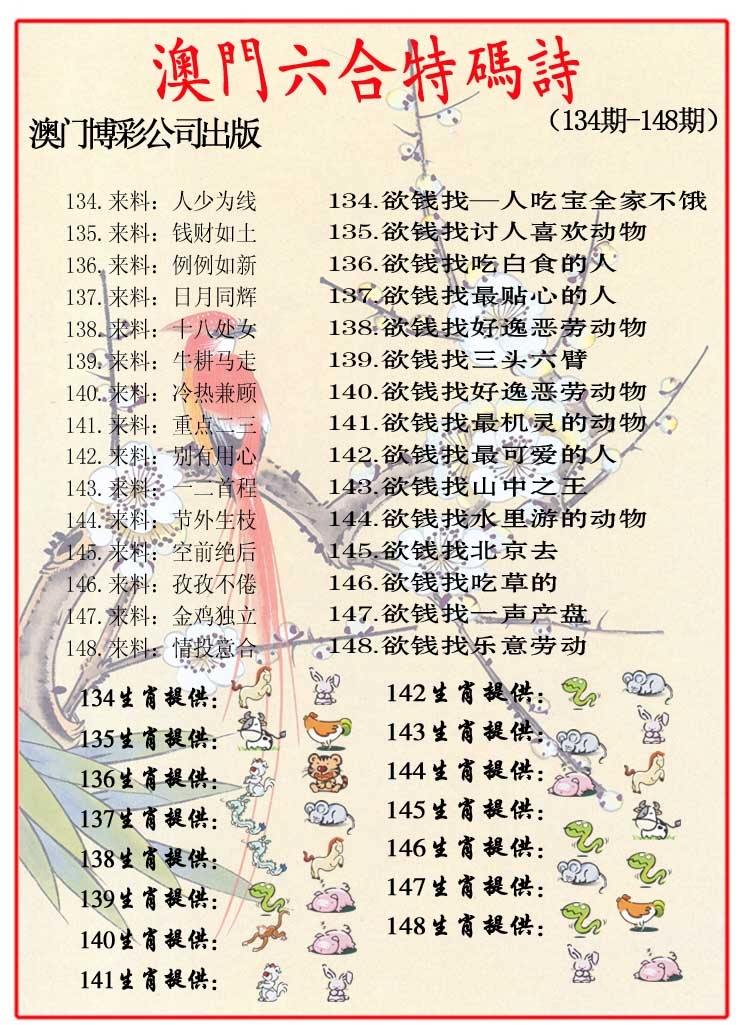 澳門六合特碼詩
澳门博彩公司出版
（134期-148期）
134.来料：人少为线 134.欲钱找一人吃宝全家不饿
135.来料：钱财如土 135.欲钱找讨人喜欢动物
136.来料：例例如新 136.欲钱找吃白食的人
137.来料：日月同辉 137.欲钱找最贴心的人
138.来料：十八处女 138.欲钱找好逸恶劳动物
139.来料：牛耕马走 139.欲钱找三头六臂
140.来料：冷热兼顾 140.欲钱找好逸恶劳动物
141.来料：重点二三 141.欲钱找最机灵的动物
142.来料：别有用心 142.欲钱找最可爱的人
143.来料：一二首程 143.欲钱找山中之王
144.来料：节外生枝 144.欲钱找水里游的动物
145.来料：空前绝后 145.欲钱找北京去
146.来料：孜孜不倦 146.欲钱找吃草的
147.来料：金鸡独立 147.欲钱找一声产盘
148.来料：情投意合 148.欲钱找乐意劳动
134生肖提供：
135生肖提供：
136生肖提供：
137生肖提供：
138生肖提供：
139生肖提供：
140生肖提供：
141生肖提供：
142生肖提供：
143生肖提供：
144生肖提供：
145生肖提供：
146生肖提供：
147生肖提供：
148生肖提供：